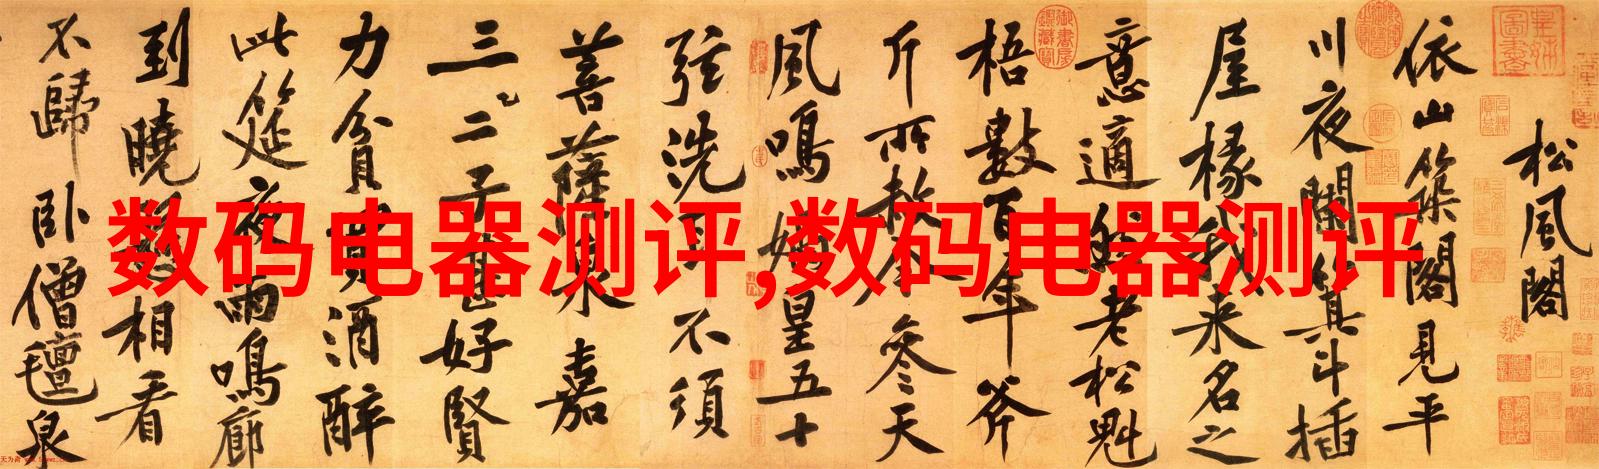 松風閣
依山築閣見平
川夜闌箕斗插
屋椽我来名之
意適然老松魁
梧數百年斧
斤所赦今参天
風鳴媧皇五十
弦洗耳不須
菩薩泉嘉
三二子甚好賢
力貧買酒醉
此筵夜雨鳴廊
到曉懸相看
不歸卧僧氊泉
数码电器测评,数码电器测评